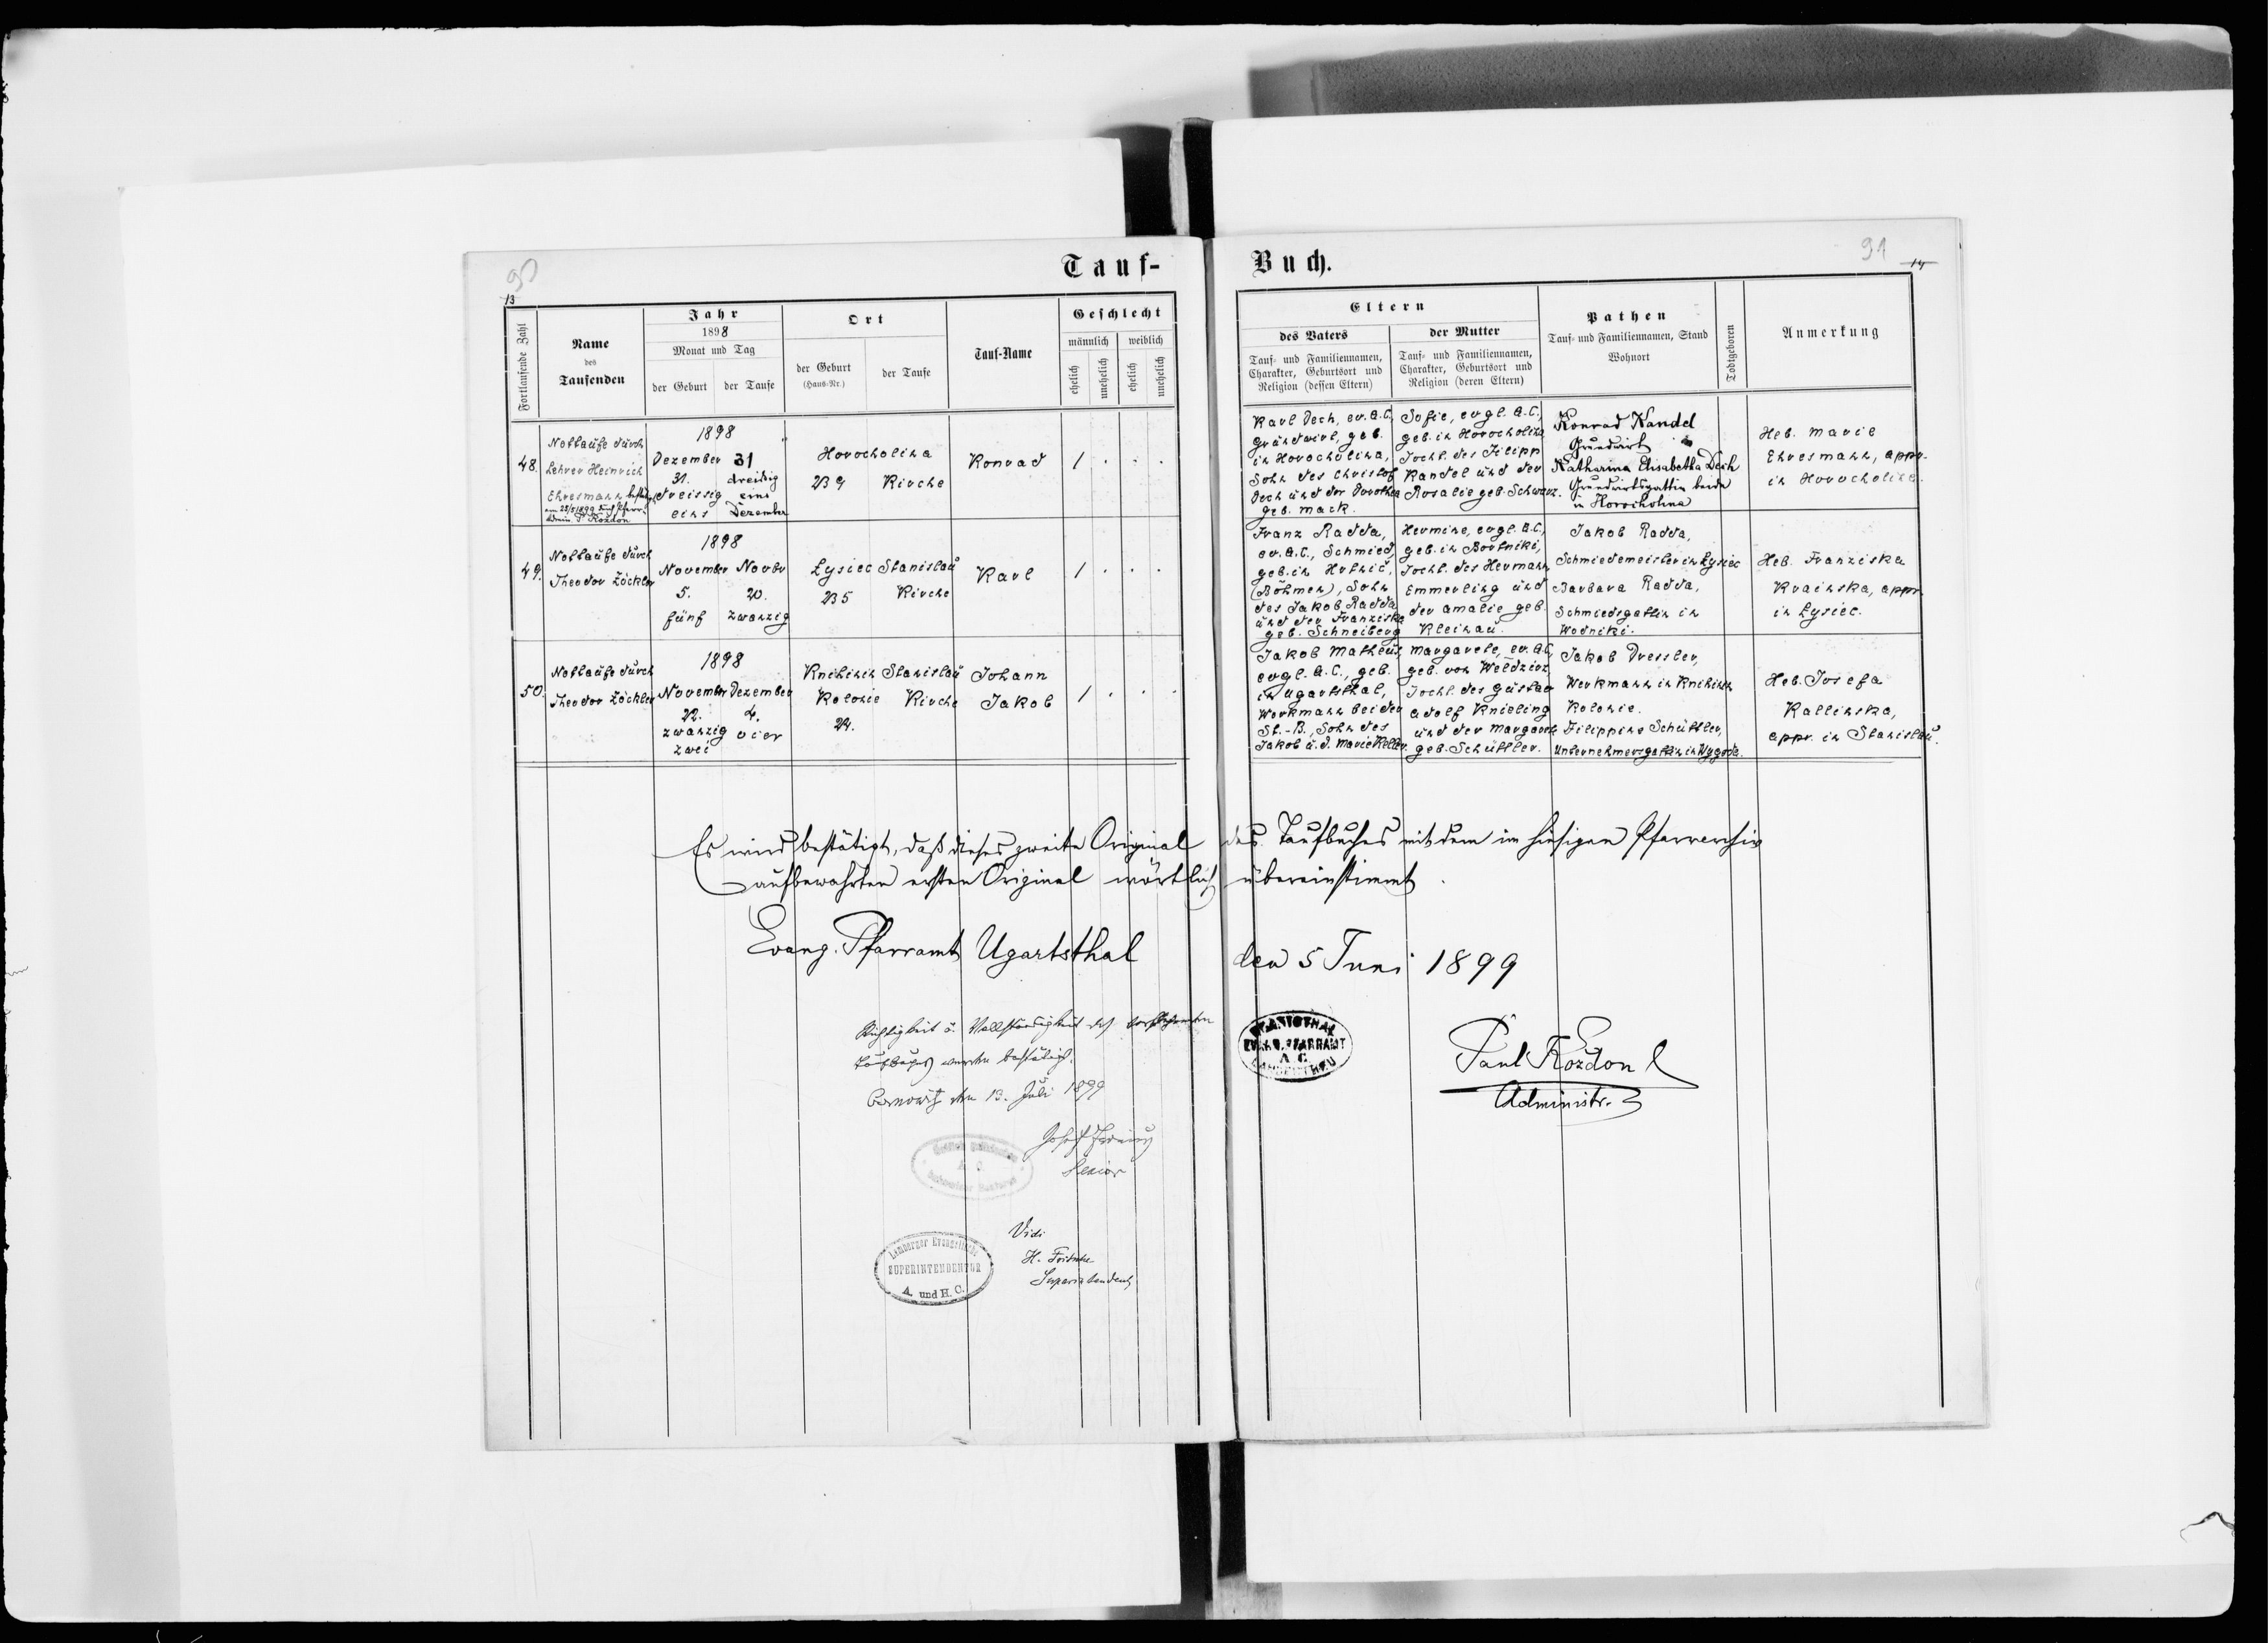 90
Tauf-
Buch.
91
14
13
Fortlaufende Zahl
Name
des
Taufenden
Jahr
1898
Monat und Tag
der Geburt
der Taufe
Ort
der Geburt
(Haus-Nr.)
der Taufe
Tauf-Name
Geschlecht
männlich
weiblich
ehelich
unehelich
ehelich
unehelich
Eltern
des Vaters
Tauf- und Familiennamen,
Charakter, Geburtsort und
Religion (dessen Eltern)
der Mutter
Tauf- und Familiennamen,
Charakter, Geburtsort und
Religion (deren Eltern)
Pathen
Tauf- und Familiennamen, Stand
Wohnort
Todtgeboren
Anmerkung
48.
Nottaufe durch
Lehrer Heinrich
Ehresmann bestätigt
am 28/5 1899 durch Pfarr-
admin. P. Kozdon
1898
Dezember
31.
dreissig
eins
31
dreißig
eins
Dezember
Horocholina
239
Kirche
Konrad
1 . . .
Karl Dech, ev. A.C.,
Grundwirt, geb.
in Horocholina,
Sohn des Christof
Dech und der Dorothea
geb. Mack.
Sofie, evgl. A.C.,
geb. in Horocholina
Tochl. des Filipp
Kandel und der
Rosalie geb. Schwarz.
Konrad Kandel
Grundwirt
Katharina Elisabetha Dech
Grundwirtsgattin beide
in Horocholina
Heb. Marie
Ehresmann, appr.
in Horocholina.
49.
Nottaufe durch
Theodor Zöckler
1898
November
5.
fünf
Novbr
20.
zwanzig
Łysiec
235
Stanislau
Kirche
Karl
1 . . .
Franz Radda,
ev. A.C., Schmied,
geb. in Hrtnič,
(Böhmen), Sohn
des Jakob Radda
und der Franziska
geb. Schneiberg
Hermine, evgl. A.C.,
geb. in Bortniki,
Tochl. des Hermann
Emmerling und
der Amalie geb.
Kleinau.
Jakob Radda,
Schmiedemeister in Łysiec
Barbara Radda,
Schmiedsgattin in
Wodniki.
Heb. Franziska
Krainska, appr.
in Łysiec.
50.
Nottaufe durch
Theodor Zöckler
1898
November
22.
zwanzig
zwei
Dezember
4.
vier
Knihinin
Kolonie
24.
Stanislau
Kirche
Johann
Jakob
1 . . .
Jakob Matheus,
evgl. A.C., geb.
in Ugartsthal,
Werkmann bei der
St.-B., Sohn des
Jakob u. d. Marie Keller.
Margarete, ev. A.C.,
geb. von Weldzirz,
Tochl. des Gustav
Adolf Knieling
und der Margarete
geb. Schüttler.
Jakob Dressler,
Werkmann in Knihinin
Kolonie.
Filippine Schüttler,
Unternehmersgattin in Wygoda.
Heb. Josefa
Kallinska,
appr. in Stanislau.
Es wird bestätigt, daß dieses zweite Original des Taufbuches mit dem im hiesigen Pfarrarchiv
aufbewahrten ersten Original wörtlich übereinstimmt.
Evang. Pfarramt Ugartsthal den 5 Juni 1899
UGARTSTHAL
EVANG. PFARRAMT
A. C.
Paul Kozdon
Administr.
Richtigkeit u. Vollständigkeit des vorstehenden
Taufbuches werden bestätigt.
den 13. Juli 1899
Josef
Senior
Vidi
H. Fritsche
Superintendent
Lemberger Evangelische
SUPERINTENDENTUR
A. und H. C.